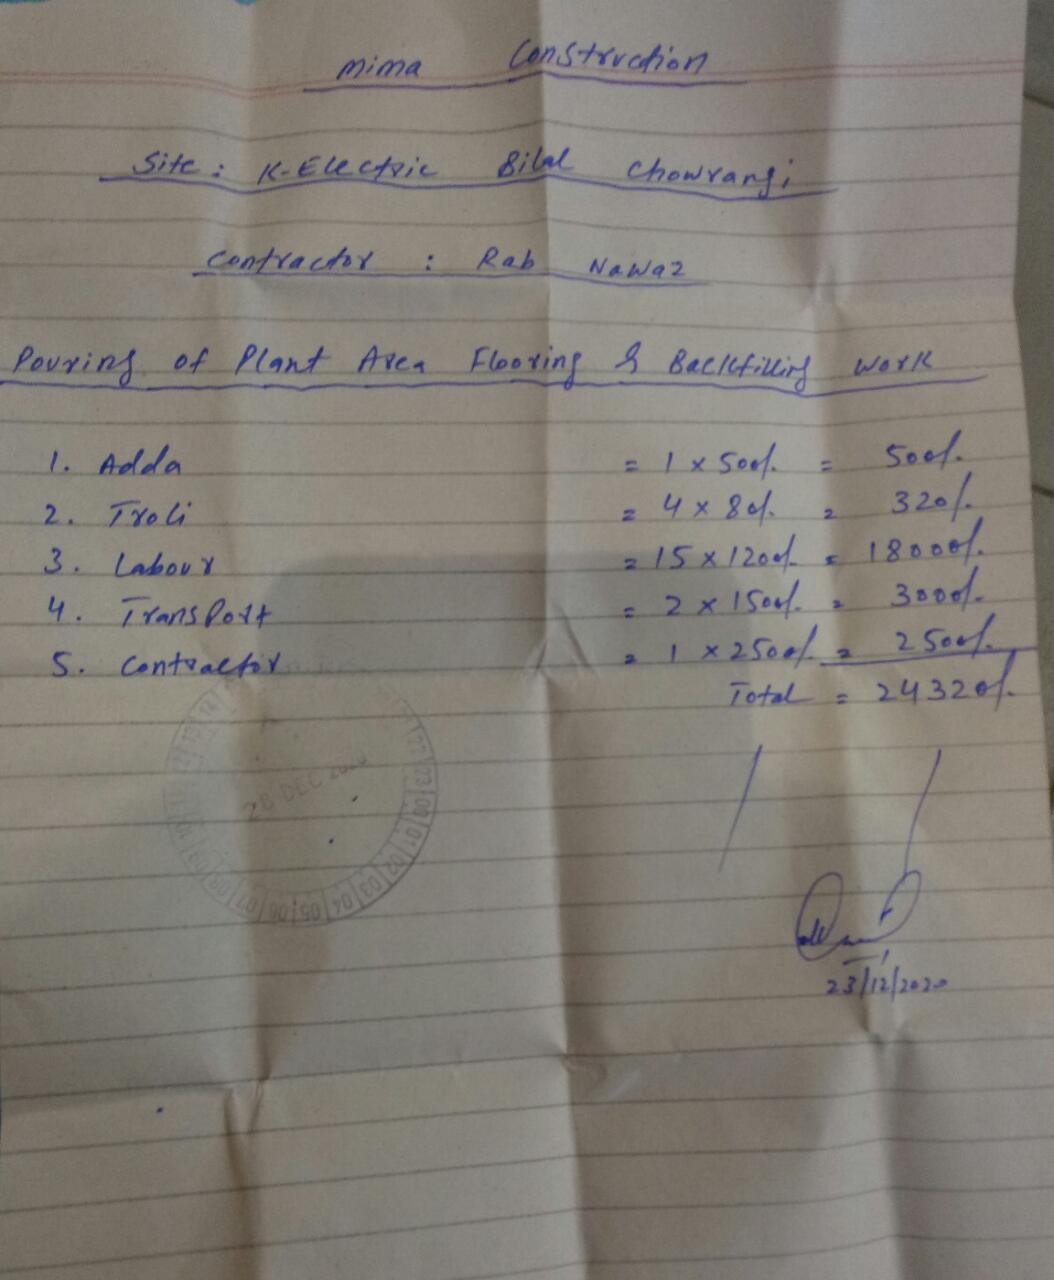 Mima Construction
Site: K-Electric Bilal Chowrangi
Contractor : Rab Nawaz
Pouring of Plant Area Flooring & Backfilling Work
1. Adda = 1 x 500/. = 500/.
2. Troli = 4 x 80/. = 320/.
3. Labour = 15 x 1200/. = 18000/.
4. Transport = 2 x 1500/. = 3000/.
5. Contractor = 1 x 2500/. = 2500/.
Total = 24320/.
28 DEC 2020
23/12/2020